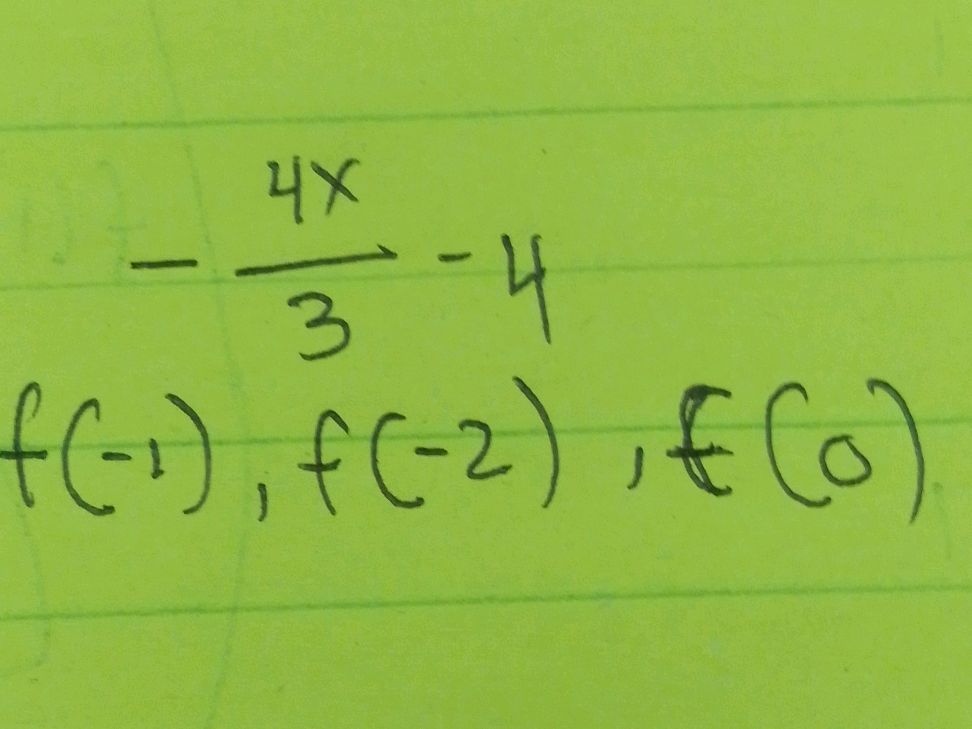 - 4x/3 - 4
f(-1), f(-2), f(0)